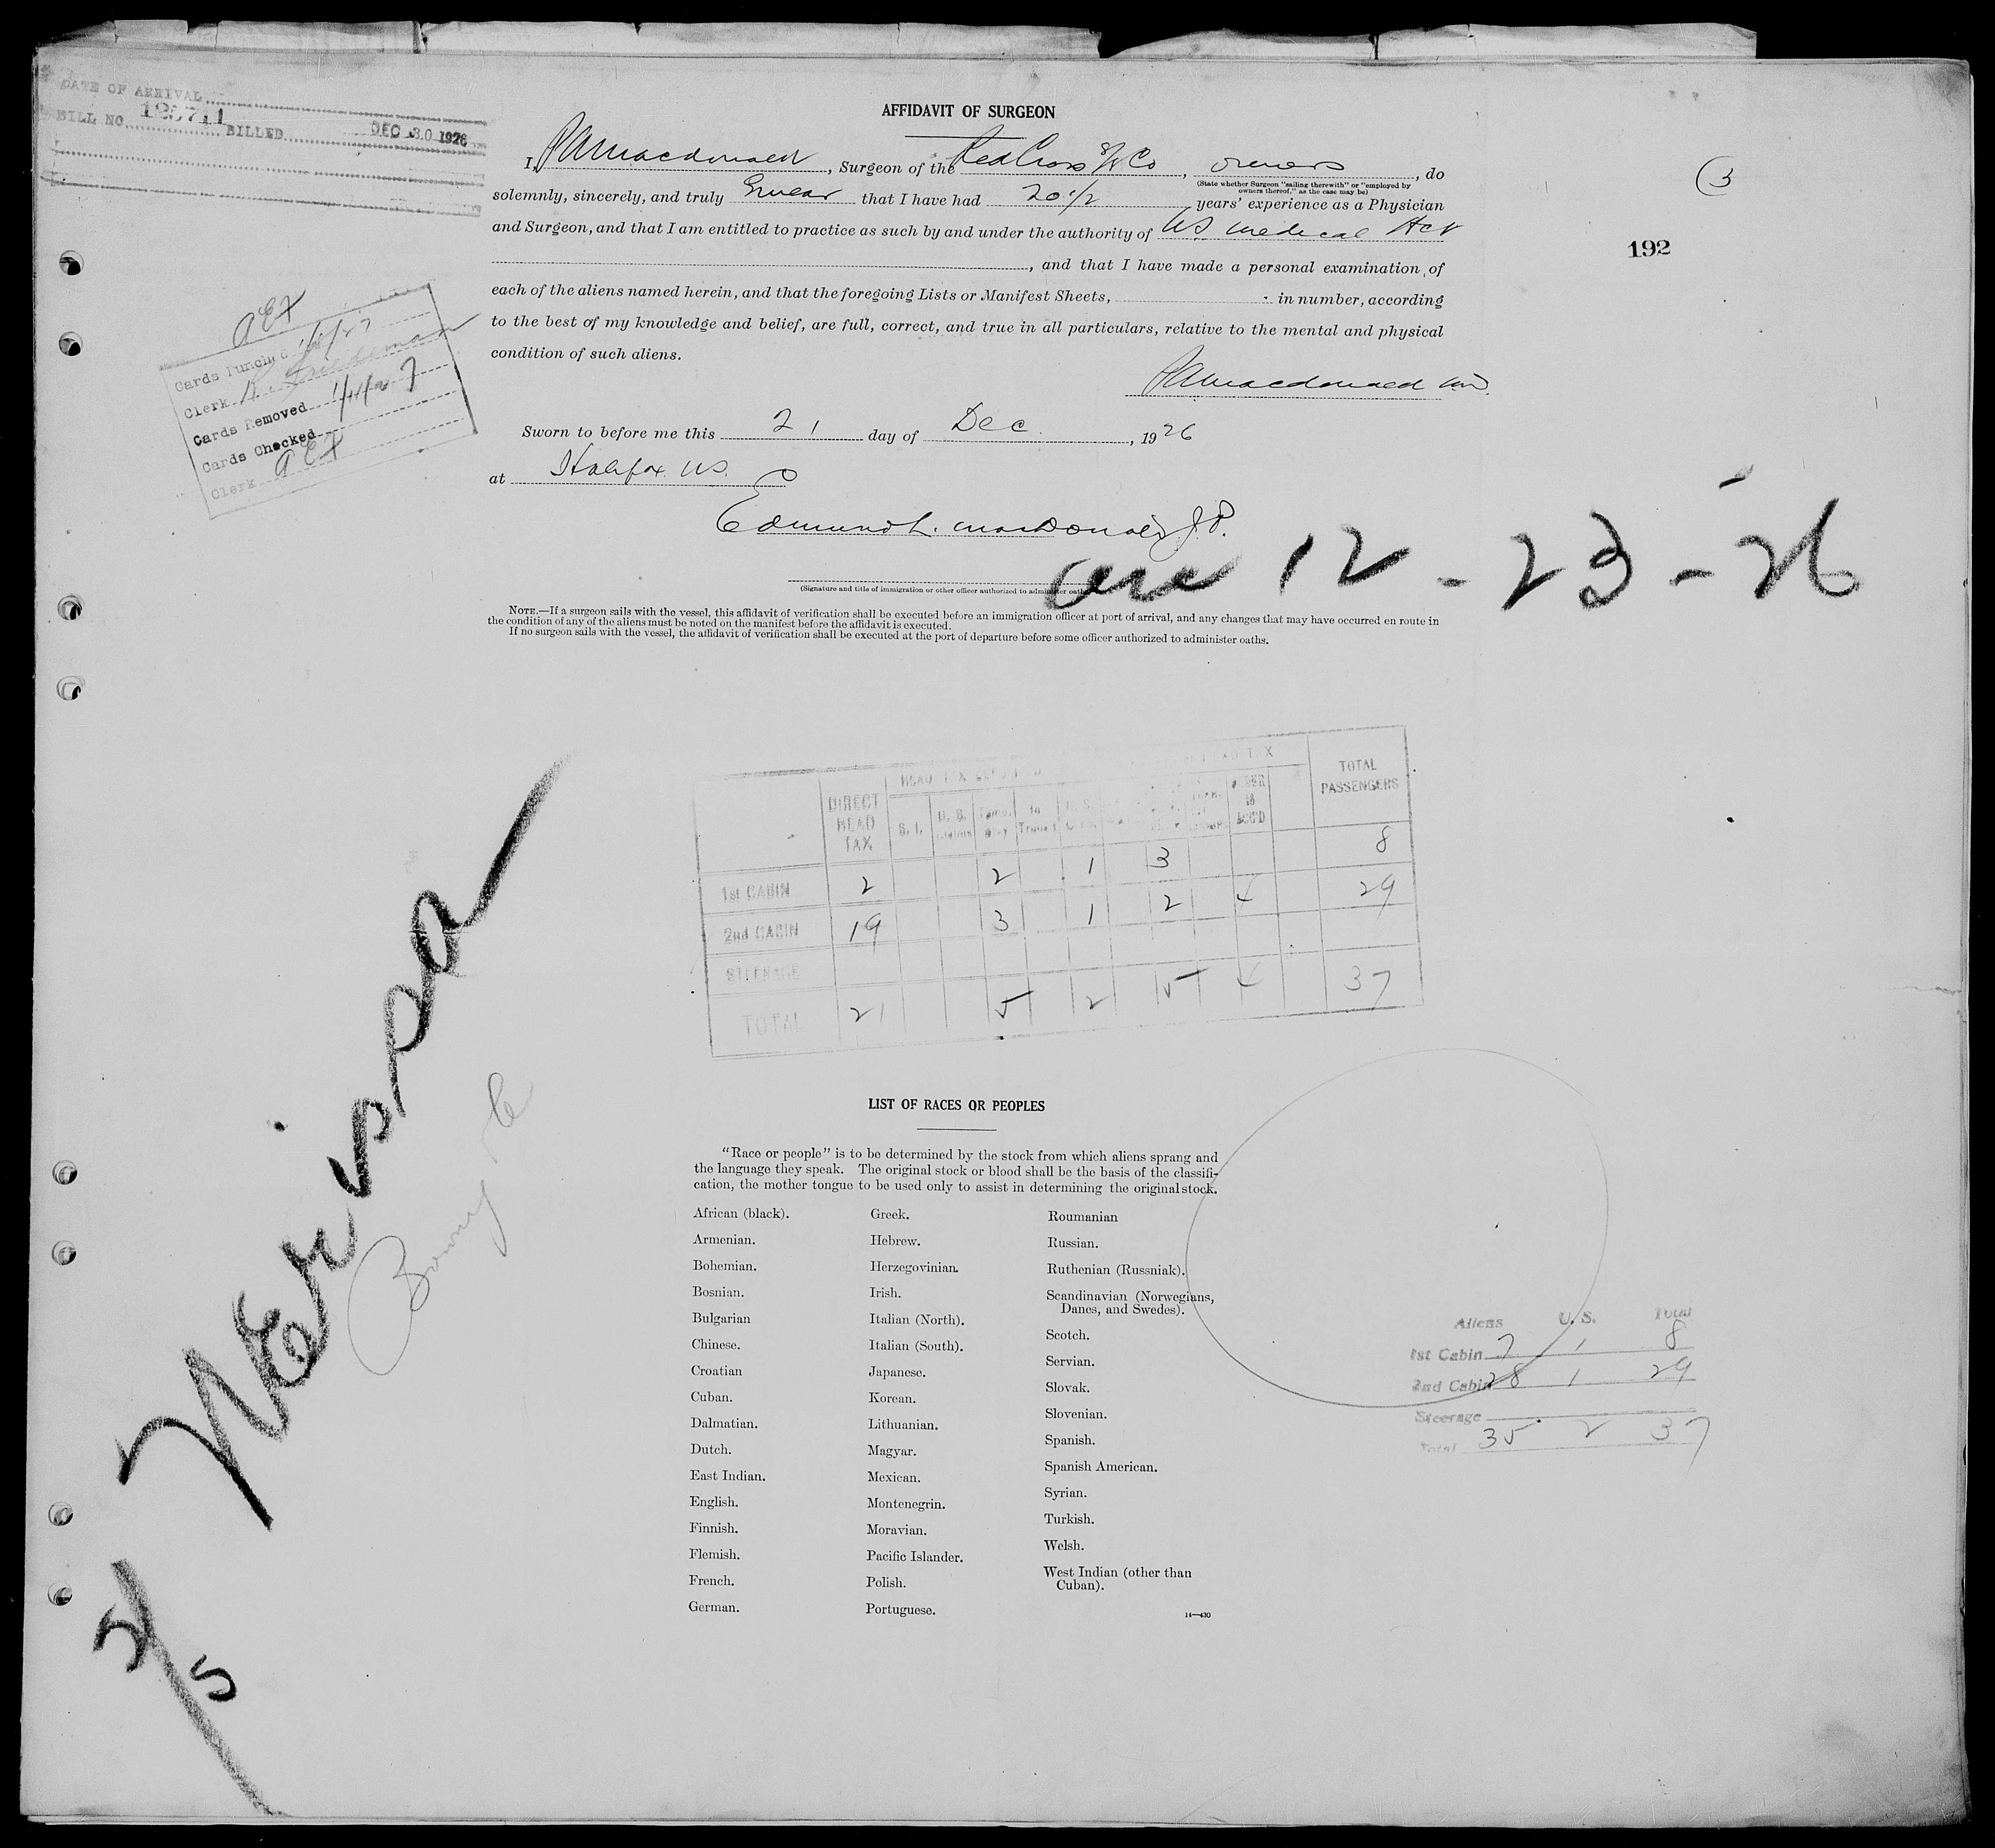 DATE OF ARRIVAL
BILL NO. BILLED DEC 30 1926
AFFIDAVIT OF SURGEON
I, Macdonald, Surgeon of the Red Cross S/S Co, owners, do
(State whether Surgeon "sailing therewith" or "employed by
owners thereof," as the case may be)
solemnly, sincerely, and truly Swear that I have had 20 1/2 years' experience as a Physician
and Surgeon, and that I am entitled to practice as such by and under the authority of NS. medical Act
, and that I have made a personal examination of
each of the aliens named herein, and that the foregoing Lists or Manifest Sheets, in number, according
to the best of my knowledge and belief, are full, correct, and true in all particulars, relative to the mental and physical
condition of such aliens.
Macdonald MD.
3
192
Cards Punched
Clerk
Cards Removed
Cards Checked
Clerk
Sworn to before me this 21 day of Dec., 1926
at Halifax NS.
Edmund L. MacDonald J.P.
(Signature and title of immigration or other officer authorized to administer oaths
arr 12-23-26
NOTE.—If a surgeon sails with the vessel, this affidavit of verification shall be executed before an immigration officer at port of arrival, and any changes that may have occurred en route in
the condition of any of the aliens must be noted on the manifest before the affidavit is executed.
If no surgeon sails with the vessel, the affidavit of verification shall be executed at the port of departure before some officer authorized to administer oaths.
DIRECT HEAD TAX S. I. U. S. In Transit TOTAL PASSENGERS
1st CABIN 2 2 1 3 8
2nd CABIN 19 3 1 2 4 29
STEERAGE
TOTAL 21 5 2 5 4 37
Nerissa
Bowring & Co
LIST OF RACES OR PEOPLES
"Race or people" is to be determined by the stock from which aliens sprang and
the language they speak. The original stock or blood shall be the basis of the classifi-
cation, the mother tongue to be used only to assist in determining the original stock.
African (black).
Armenian.
Bohemian.
Bosnian.
Bulgarian
Chinese.
Croatian
Cuban.
Dalmatian.
Dutch.
East Indian.
English.
Finnish.
Flemish.
French.
German.
Greek.
Hebrew.
Herzegovinian.
Irish.
Italian (North).
Italian (South).
Japanese.
Korean.
Lithuanian.
Magyar.
Mexican.
Montenegrin.
Moravian.
Pacific Islander.
Polish.
Portuguese.
Roumanian
Russian.
Ruthenian (Russniak).
Scandinavian (Norwegians,
Danes, and Swedes).
Scotch.
Servian.
Slovak.
Slovenian.
Spanish.
Spanish American.
Syrian.
Turkish.
Welsh.
West Indian (other than
Cuban).
14—430
Aliens U. S. Total
1st Cabin 7 1 8
2nd Cabin 28 1 29
Steerage
Total 35 2 37